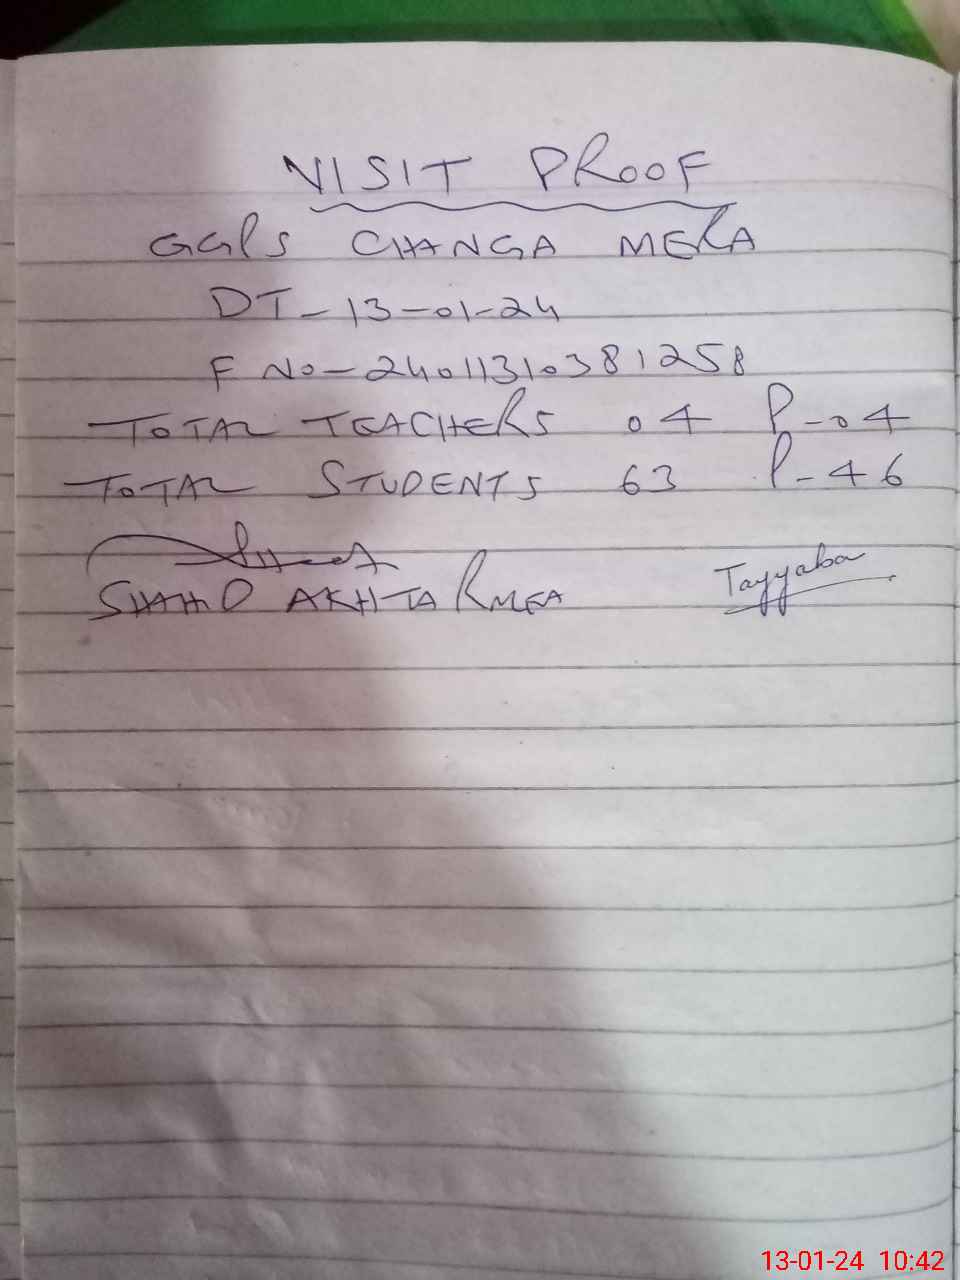 VISIT PROOF
GGPS CHANGA MERA
DT-13-01-24
F NO-2401131038 1258
TOTAL TEACHERS 04 P-04
TOTAL STUDENTS 63 P-46
SHAHID AKHTAR MEA
Tayyaba
13-01-24 10:42